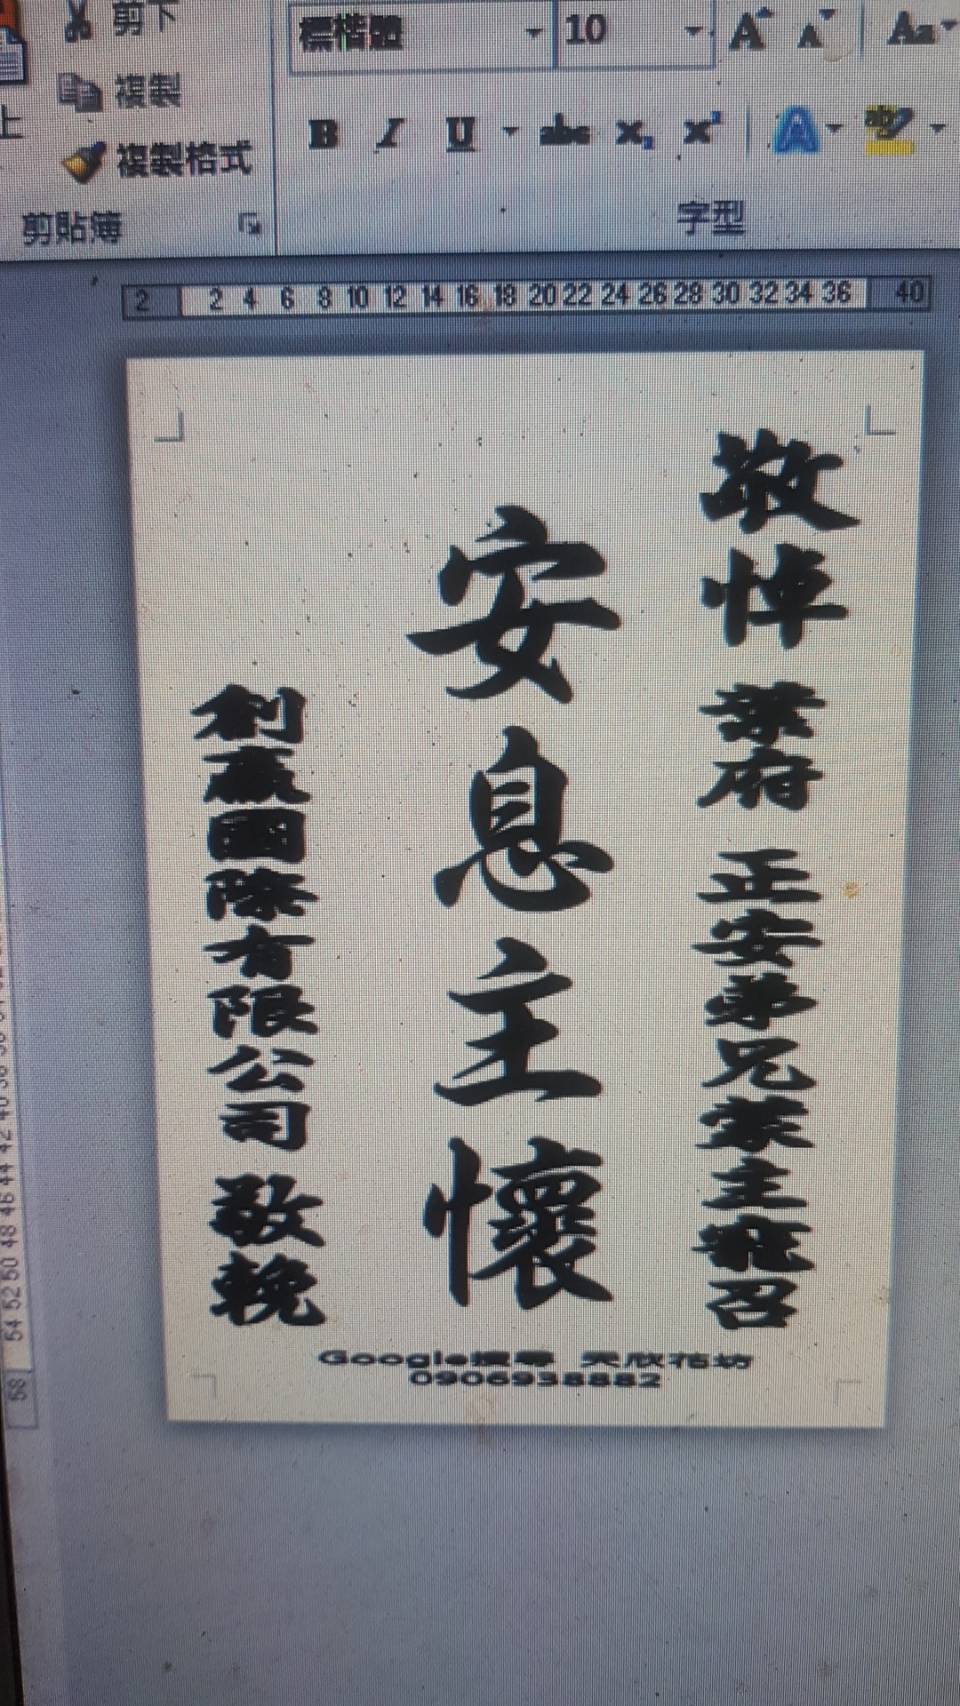 剪下
複製
複製格式
剪貼簿
上
標楷體
10
A A Aa
B I U abc x₂ x²
A ab
字型
2 2 4 6 8 10 12 14 16 18 20 22 24 26 28 30 32 34 36 40
敬悼 葉府 正安弟兄蒙主寵召
安息主懷
創贏國際有限公司 敬輓
Google搜尋 天欣花坊
0906938882
58 54 52 50 48 46 44 42 40 38 36